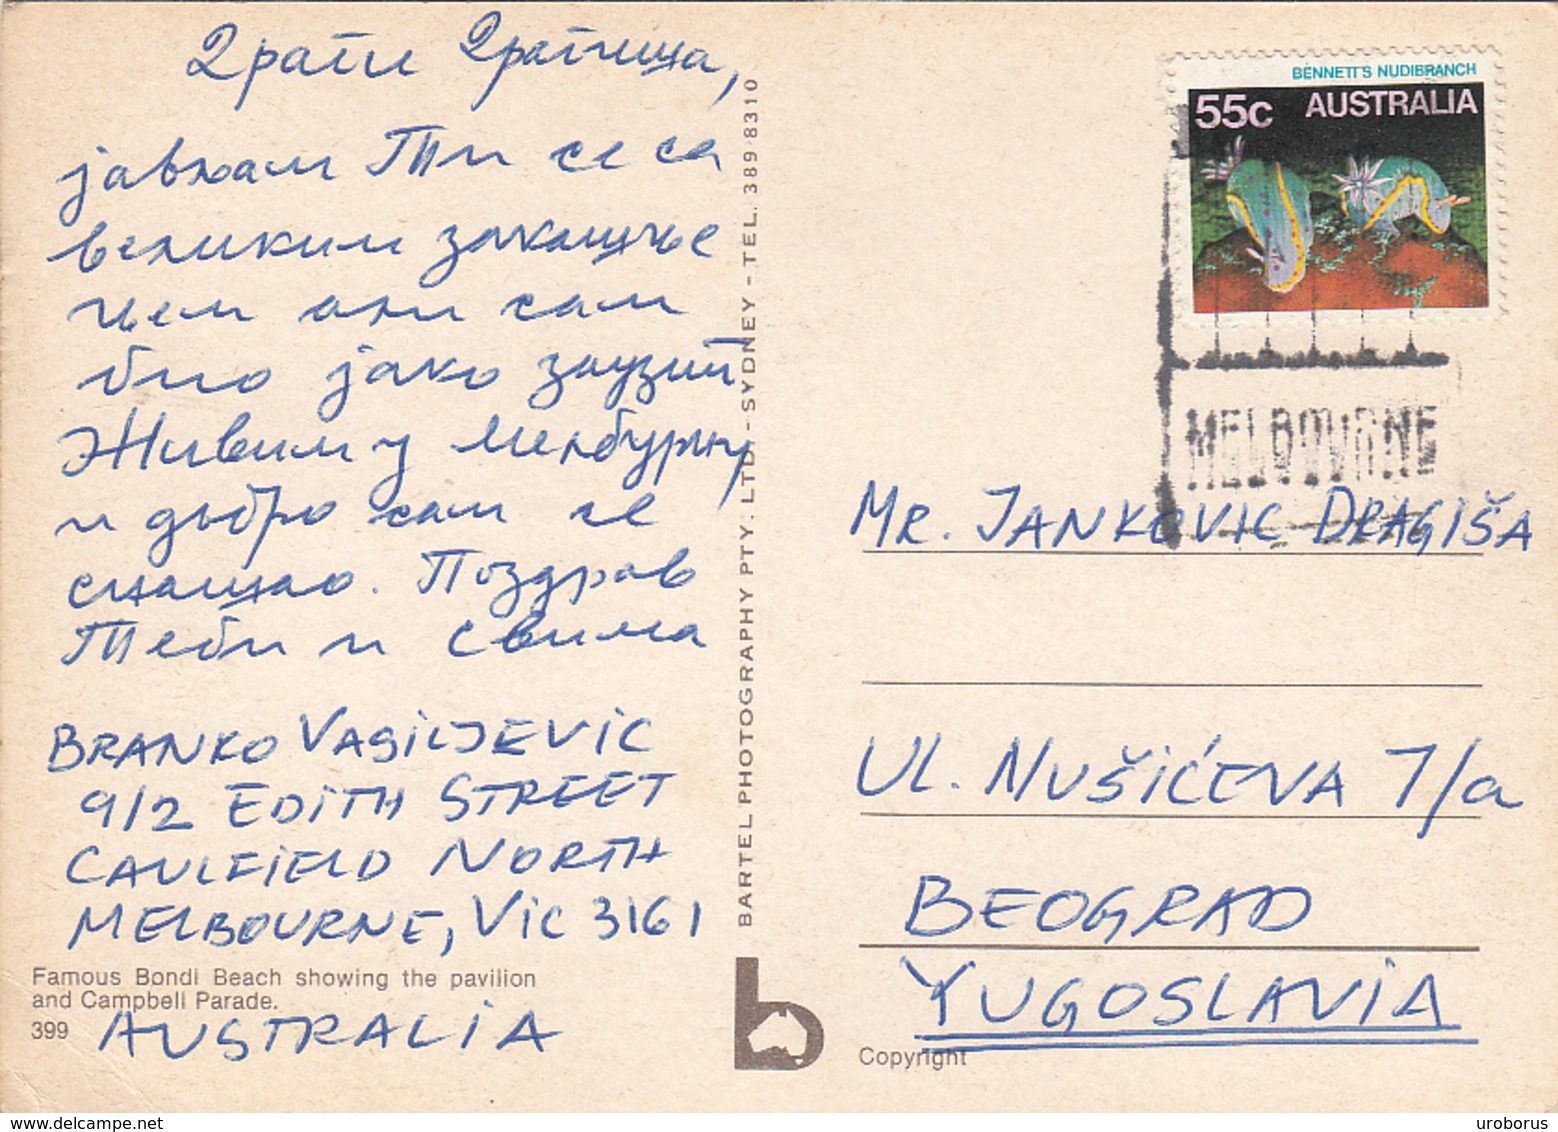 Драги Драгиша,
јављам Ти се са
великим закашње
њем али сам
био јако заузит
Живим у Мелбурну
и добро сам се
снашао. Поздрав
Теби и свима
BRANKO VASILJEVIC
9/2 EDITH STREET
CAULFIELD NORTH
MELBOURNE, VIC 3161
Famous Bondi Beach showing the pavilion
and Campbell Parade.
399
AUSTRALIA
BARTEL PHOTOGRAPHY PTY. LTD. - SYDNEY - TEL. 389-8310
BENNETT'S NUDIBRANCH
55c AUSTRALIA
MELBOURNE
MR. JANKOVIC DRAGIŠA
UL. NUŠIĆEVA 7/a
BEOGRAD
YUGOSLAVIA
Copyright
uroborus